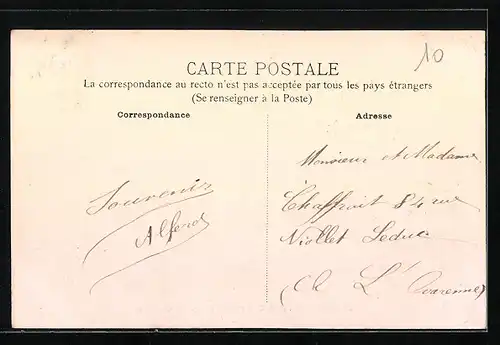 10
CARTE POSTALE
La correspondance au recto n'est pas acceptée par tous les pays étrangers
(Se renseigner à la Poste)
Correspondance
Adresse
Monsieur et Madame
Chaffrait 84 rue
Viollet Leduc
Souvenir
L'